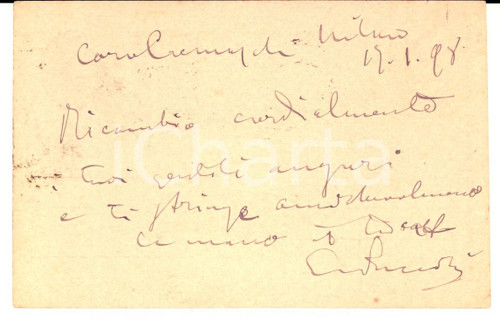 Caro Milano
19.1.98
Ricambio cordialmente
i tuoi gentili auguri
e ti stringo amichevolmente
la mano
iCharta